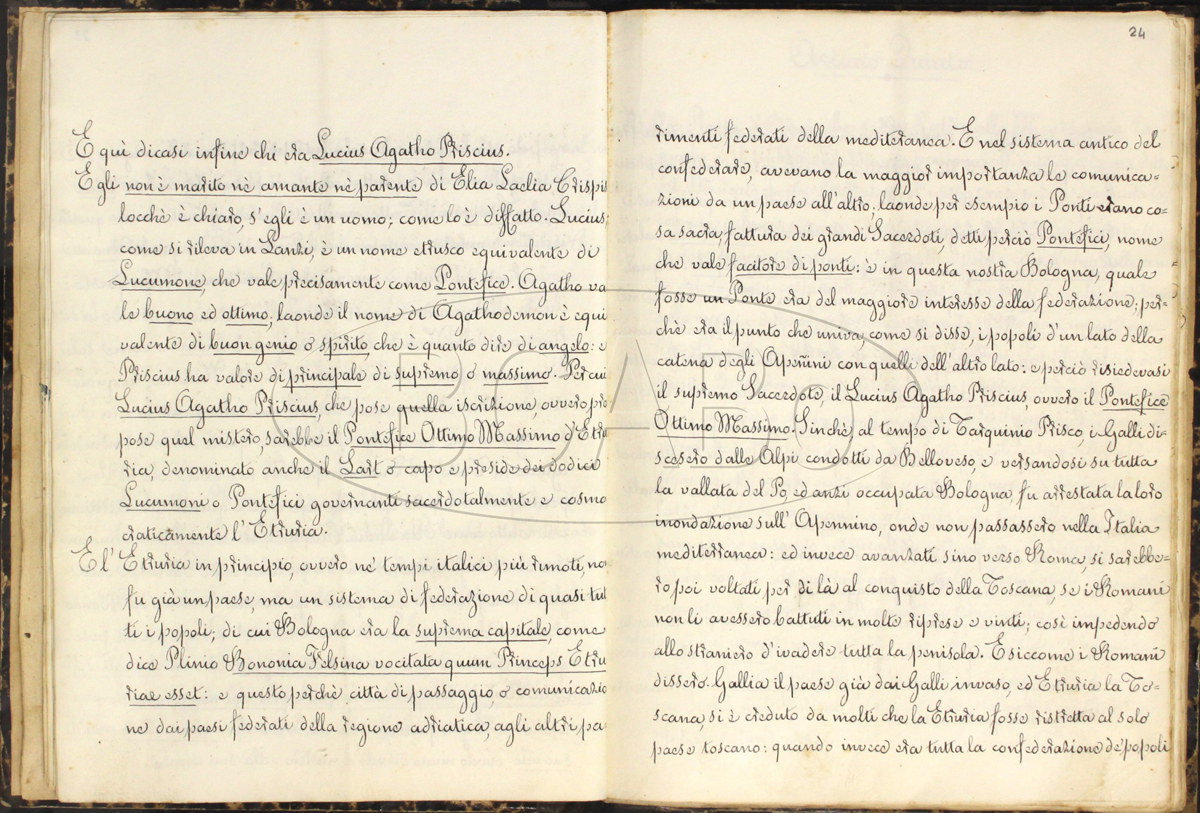 E quì dicasi infine chi era Lucius Agatho Priscius.
Egli non è marito nè amante nè parente di Elia Laelia Crispis
locchè è chiaro, s'egli è un uomo; come lo è diffatto. Lucius
come si rileva in Lanzi, è un nome etrusco equivalente di
Lucumone, che vale precisamente come Pontefice. Agatho va
le buono ed ottimo, laonde il nome di Agathodemon è equi
valente di buon genio o spirito, che è quanto dire di angelo: e
Priscius ha valore di principale di supremo o massimo. Per cui
Lucius Agatho Priscius, che pose quella iscrizione, ovvero pro
pose quel mistero, sarebbe il Pontefice Ottimo Massimo d'Etru
ria, denominato anche il Lart o capo e preside dei dodici
Lucumoni o Pontefici governanti sacerdotalmente e cosmo
craticamente l'Etruria.
E l'Etruria in principio, ovvero ne' tempi italici più rimoti, no
fu già un paese, ma un sistema di federazione di quasi tut
ti i popoli; di cui Bologna era la suprema capitale, come
dice Plinio Bononia Felsina vocitata quum Princeps Etru
riae esset: e questo perchè città di passaggio, o comunicazio
ne dai paesi federati della regione adriatica, agli altri pa
24
rimenti federati della mediteranea. E nel sistema antico del
confederare, avevano la maggior importanza le comunica=
zioni da un paese all'altro, laonde per esempio i Ponti erano co=
sa sacra, fattura dei grandi Sacerdoti, detti perciò Pontefici, nome
che vale facitore di ponti: è in questa nostra Bologna, quale
fosse un Ponte era del maggiore interesse della federazione; per=
chè era il punto che univa, come si disse, i popoli d'un lato della
catena degli Apennini con quelli dell'altro lato: e perciò risiedevasi
il supremo Sacerdote, il Lucius Agatho Priscius, ovvero il Pontefice
Ottimo Massimo. Sinchè, al tempo di Tarquinio Prisco, i Galli di=
scesero dalle Alpi condotti da Belloveso, e versandosi su tutta
la vallata del Po, ed anzi occupata Bologna, fu arrestata la loro
inondazione sull'Apennino, onde non passassero nella Italia
mediterranea: ed invece avanzati sino verso Roma, si sarebbe=
ro poi voltati per di là al conquisto della Toscana, se i Romani
non li avessero battuti in molte riprese e vinti; così impedendo
allo straniero d'ivadere tutta la penisola. E siccome i Romani
dissero Gallia il paese già dai Galli invaso, ed Etruria la To=
scana, si è creduto da molti che la Etruria fosse ristretta al solo
paese toscano: quando invece era tutta la confederazione de' popoli
BCABo